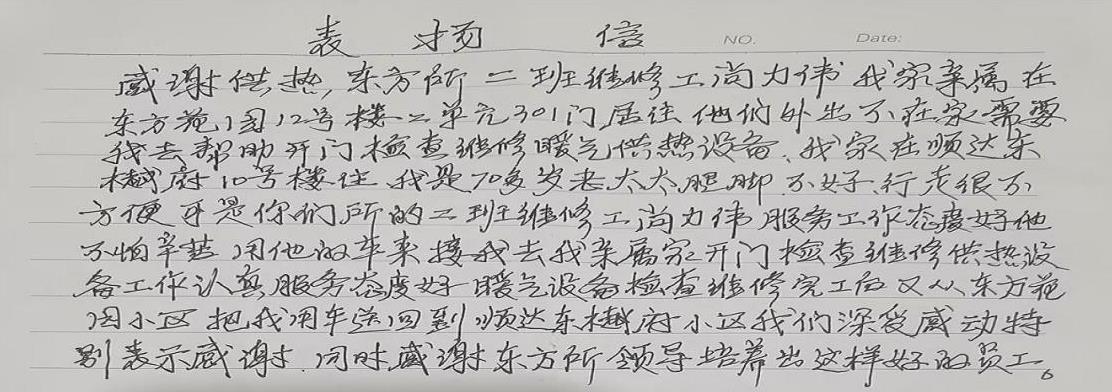 表扬信 NO. Date:
感谢供热,东方所二班维修工尚力伟我家亲属在
东方苑1园12号楼二单元301门居住他们外出不在家需要
我去帮助开门检查维修暖气供热设备、我家在顺达东
樾府10号楼住、我是70多岁老太太腿脚不好、行走很不
方便于是你们所的二班维修工尚力伟服务工作态度好他
不怕辛苦用他的车来接我去我亲属家开门检查维修供热设
备工作认真服务态度好暖气设备检查维修完工后又从东方苑
1园小区把我用车送回到顺达东樾府小区我们深受感动特
别表示感谢.同时感谢东方所领导培养出这样好的员工。